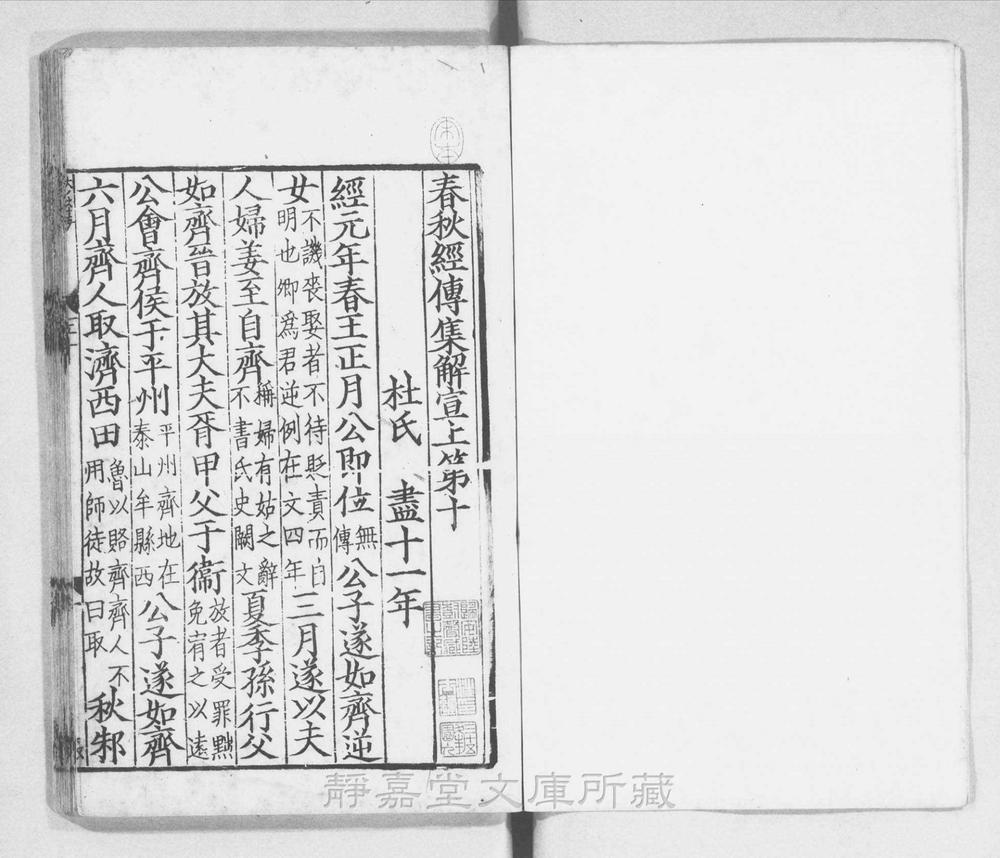 春秋經傳集解宣上第十
杜氏　盡十一年
經元年春王正月公即位無傳公子遂如齊逆
女不譏喪娶者不待貶責而自明也卿爲君逆例在文四年三月遂以夫
人婦姜至自齊稱婦有姑之辭不書氏史闕文夏季孫行父
如齊晉放其大夫胥甲父于衞放者受罪黜免宥之以遠
公會齊侯于平州平州齊地在泰山牟縣西公子遂如齊
六月齊人取濟西田魯以賂齊齊人不用師徒故曰取秋邾
靜嘉堂文庫所藏